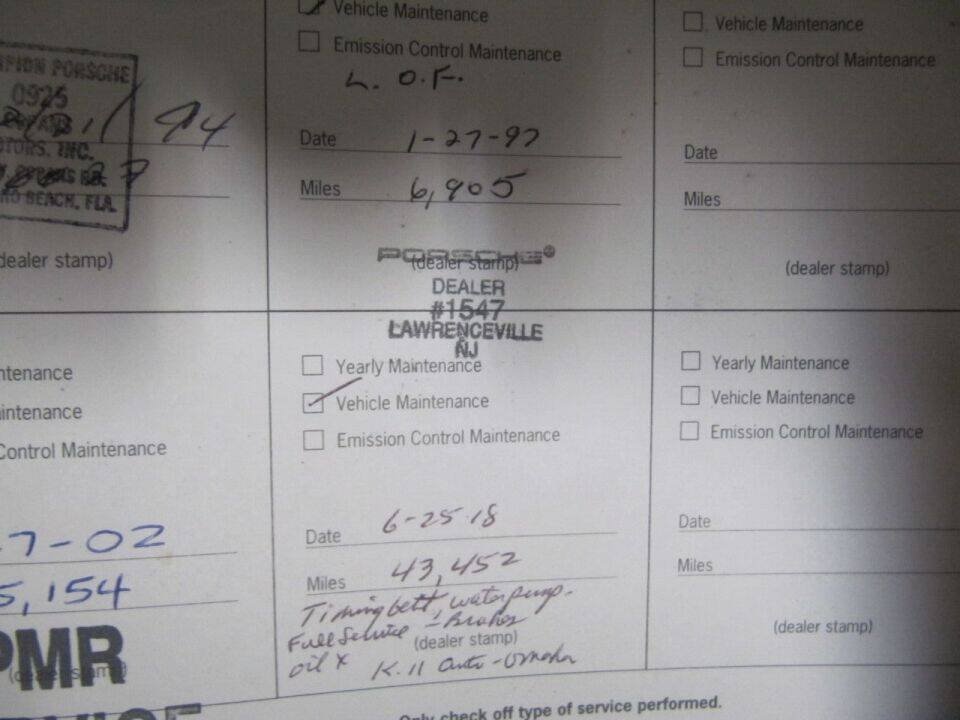 Vehicle Maintenance
Emission Control Maintenance
L. O.F.
Date 1-27-97
Miles 6,905
(dealer stamp)
PORSCHE®
DEALER
#1547
LAWRENCEVILLE
NJ
Vehicle Maintenance
Emission Control Maintenance
Date
Miles
(dealer stamp)
PORSCHE
0925
MOTORS, INC.
BEACH, FLA.
94
dealer stamp)
ntenance
intenance
Control Maintenance
7-02
5,154
PMR
Yearly Maintenance
Vehicle Maintenance
Emission Control Maintenance
Date 6-25-18
Miles 43,452
Timing belt, water pump.
Full Service - Brakes
(dealer stamp)
oil x K.11 Auto-Omaha
Yearly Maintenance
Vehicle Maintenance
Emission Control Maintenance
Date
Miles
(dealer stamp)
Only check off type of service performed.